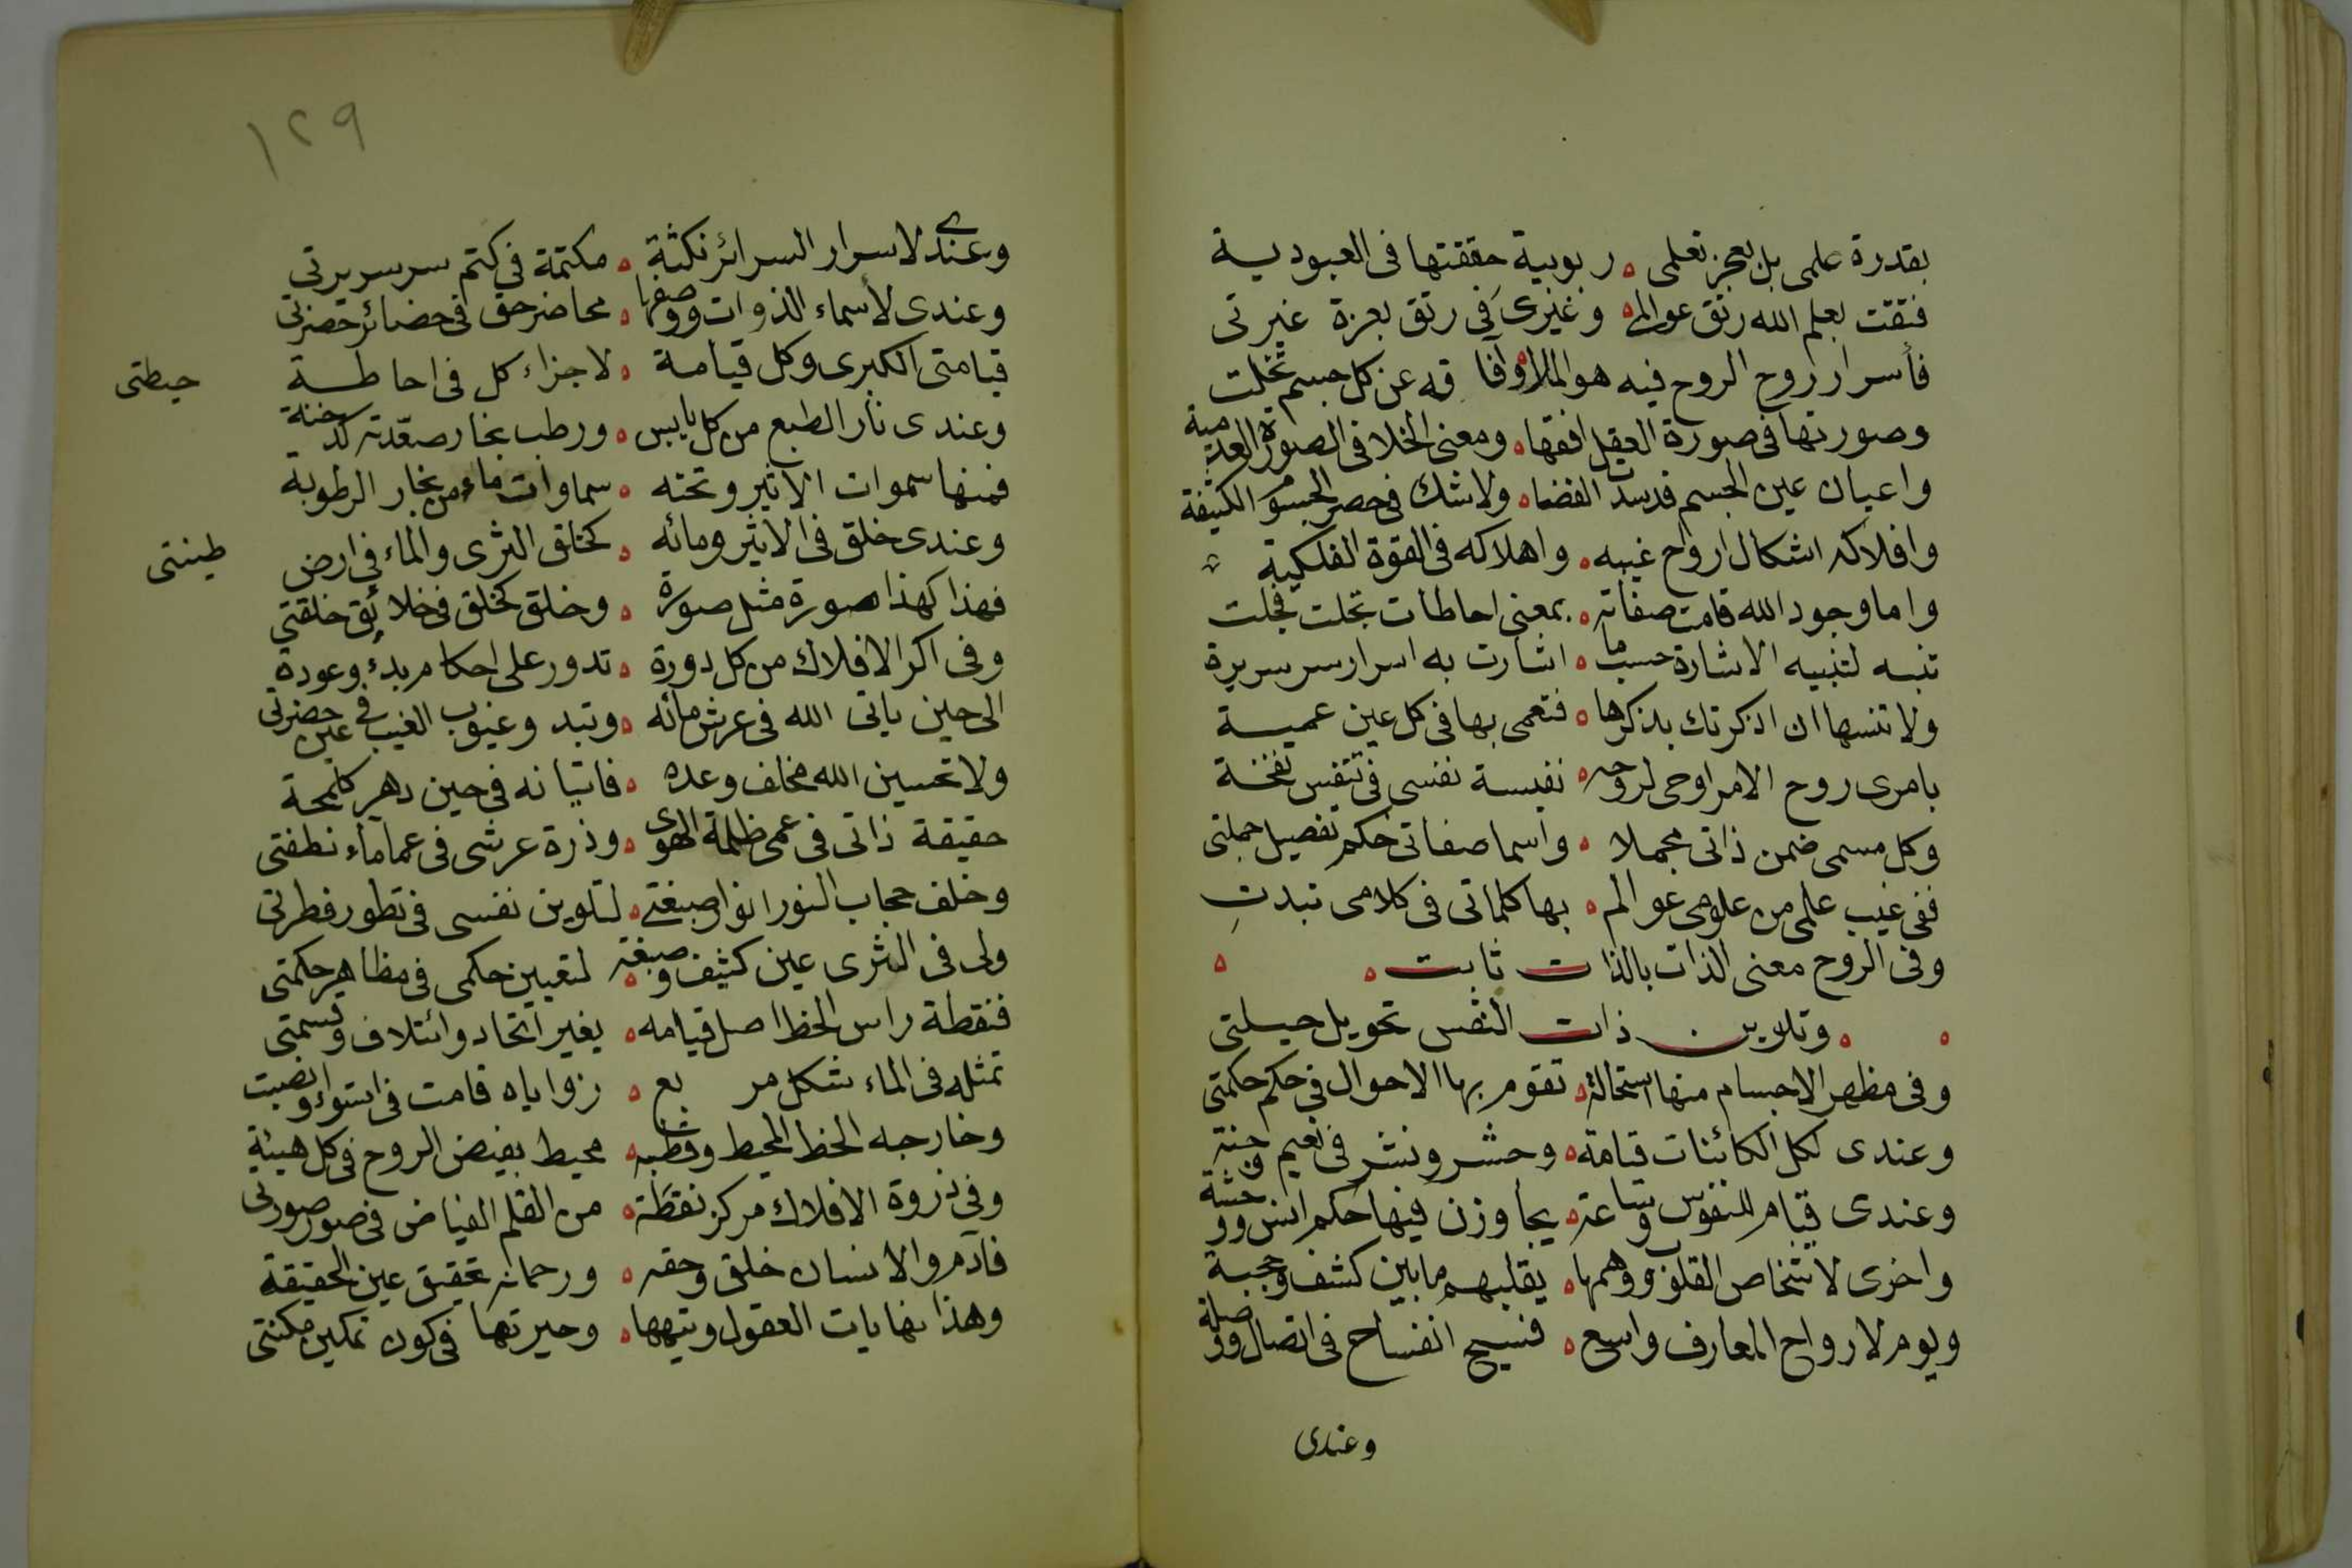 بقدرة علمى بل بعجز تعلمى ه ربوبية حققتها فى العبودية
فتقت بعلم الله رتق عوالمى ه وغيرى فى رتق بعزة غيرتى
فأسرار روح الروح فيه هو الملا ه وآفاقه عن كل جسم تخلت
وصورتها فى صورة العقل افقها ه ومعنى الخلا فى الصورة العدمية
واعيان عين الجسم قد سدت الفضا ه ولا شك فى حصر الجسوم الكثيفة
وافلاكه اشكال ارواح غيبه ه واهلاكه فى القوة الفلكية
واما وجود الله قامت صفاته ه بمعنى احاطات تجلت فجلت
تنبه لتنبيه الاشارة حسب ما ه اشارت به اسرار سر سريرة
ولا تنسها ان اذكرتك بذكرها ه فتعمى بها فى كل عين عمية
بامرى روح الامر اوحى لروحه ه نفيسة نفسى فى تنفيس نفخة
وكل مسمى ضمن ذاتى مجملا ه واسما صفاتى حكم تفصيل جملتى
ففى غيب علمى من علومى عوالم ه بها كلماتى فى كلامى تبدت
وفى الروح معنى الذات بالذات ثابت ه ه
ه ه وتلوين ذات النفس تحويل حيلتى
وفى مظهر الاجسام منها استحالة ه تقوم بها الاحوال فى حكم حكمتى
وعندى لكل الكائنات قيامة ه وحشر ونشر فى نعيم وجنة
وعندى قيام للنفوس وساعة ه يجاوزن فيها حكم انس ووحشة
واخرى لاشخاص القلوب ووهمها ه يقلبهم ما بين كشف وحجبة
ويوم لارواح المعارف واسع ه فسيح انفساح فى اتصال ووصلة
وعندى
١٢٩
وعندى لاسرار السرائر نكثة ه مكتمة فى كتم سر سريرتى
وعندى لأسماء الذوات ووصفها ه محاضر حق فى حضائر حضرتى
قيامتى الكبرى وكل قيامة ه لاجزاء كل فى احاطة حيطتى
وعندى نار الطبع من كل يابس ه ورطب بخار صعّدته كدخنة
فمنها سموات الاثير وتحته ه سماوات ماء من بخار الرطوبة
وعندى خلق فى الاثير ومائه ه كخلق الثرى والماء فى ارض طينتى
فهذا كهذا صورة مثل صورة ه وخلق كخلق فى خلائق خلقتي
وفى اكر الافلاك من كل دورة ه تدور على احكام بدء وعودة
الى حين ياتى الله فى عرش مائه ه وتبدو غيوب الغيب فى عين حضرتى
ولا تحسبن الله مخلف وعده ه فاتيانه فى حين دهر كلمحة
حقيقة ذاتى فى عمى ظلمة الهوى ه وذرة عرشى فى عما ماء نطفتى
وخلف حجاب النور انوار صبغتى ه لتلوين نفسى فى تطور فطرتى
ولى فى الثرى عين كثيف وصبغة ه لتعيين حكمى فى مظاهر حكمتى
فنقطة راس الخط اصل قيامه ه بغير اتحاد وائتلاف وقسمتى
تمثله فى الماء شكل مربع ه زواياه قامت فى استواء وانصبت
وخارجه الخط المحيط وقطبه ه محيط بفيض الروح فى كل هيئة
وفى ذروة الافلاك مركز نقطة ه من القلم الفياض فى صور صورتى
فآدم والانسان خلقى وحقه ه ورحمانه تحقيق عين الحقيقة
وهذا نهايات العقول وتيهها ه وحيرتها فى كون تمكين مكنتى